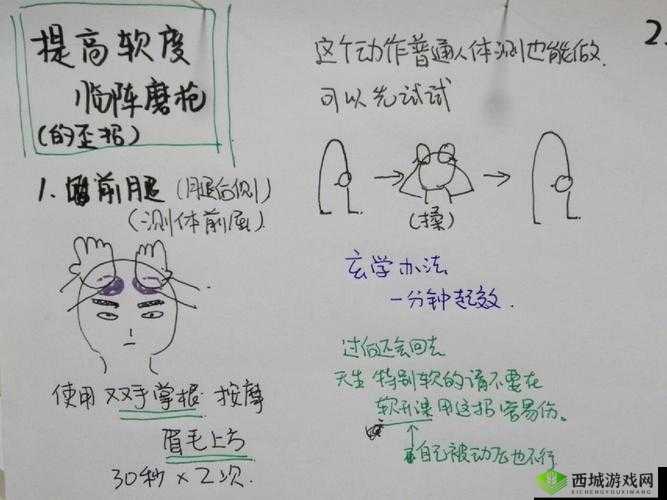 提高软度
临阵磨枪
(的歪招)
1.前腿(腿后侧)
(测体前屈)
使用双手掌根按摩
眉毛上方
30秒×2次.
2.
这个动作普通人体测也能做.
可以先试试
(揉)
玄学办法
一分钟起效.
过何还会回去
天生特别软的请不要在
软开课用这招容易伤。
自己被动也不行
西城游戏网
XICHENGYOUXIWANG.COM